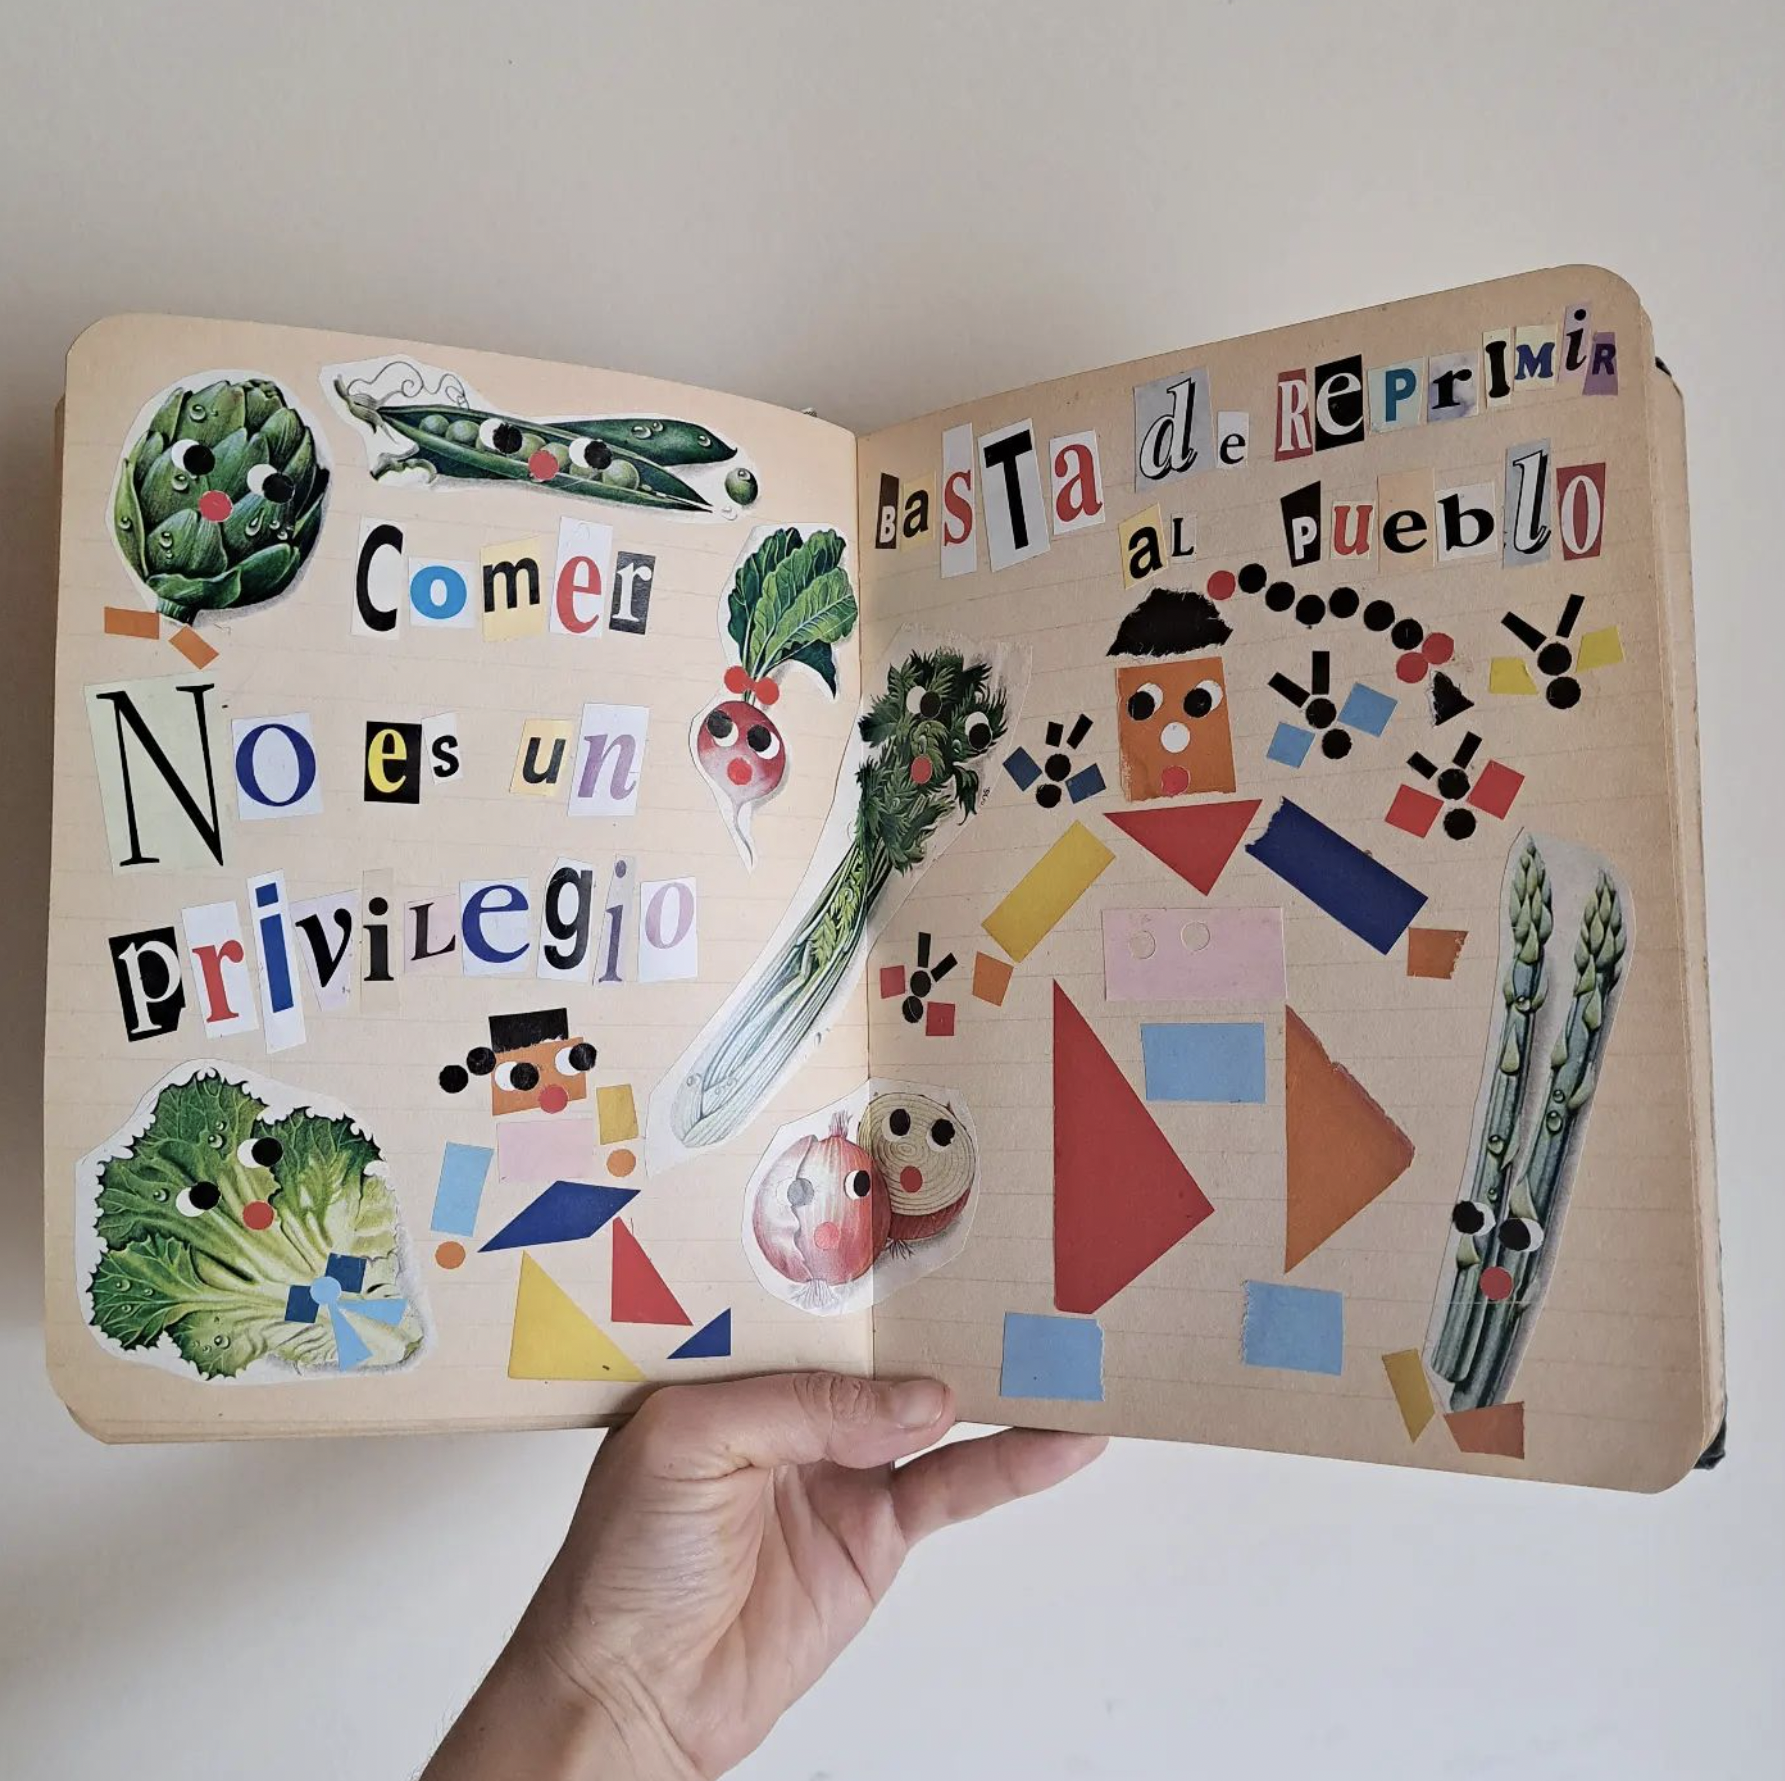 Comer
No es un
priviLegio
BaSTa de RePrIMiR
aL Pueblo